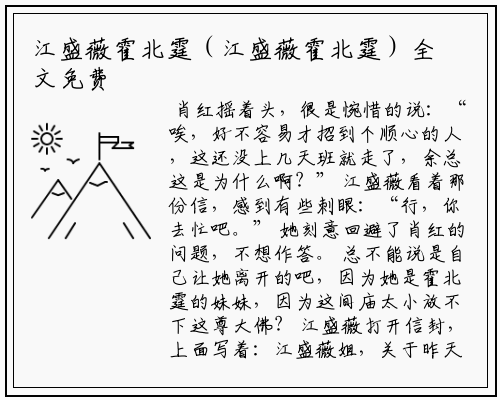 江盛薇霍北霆（江盛薇霍北霆）全
文免费
肖红摇着头，很是惋惜的说：“
唉，好不容易才招到个顺心的人
，这还没上几天班就走了，余总
这是为什么啊？” 江盛薇看着那
份信，感到有些刺眼：“行，你
去忙吧。” 她刻意回避了肖红的
问题，不想作答。 总不能说是自
己让她离开的吧，因为她是霍北
霆的妹妹，因为这间庙太小放不
下这尊大佛？ 江盛薇打开信封，
上面写着：江盛薇姐，关于昨天